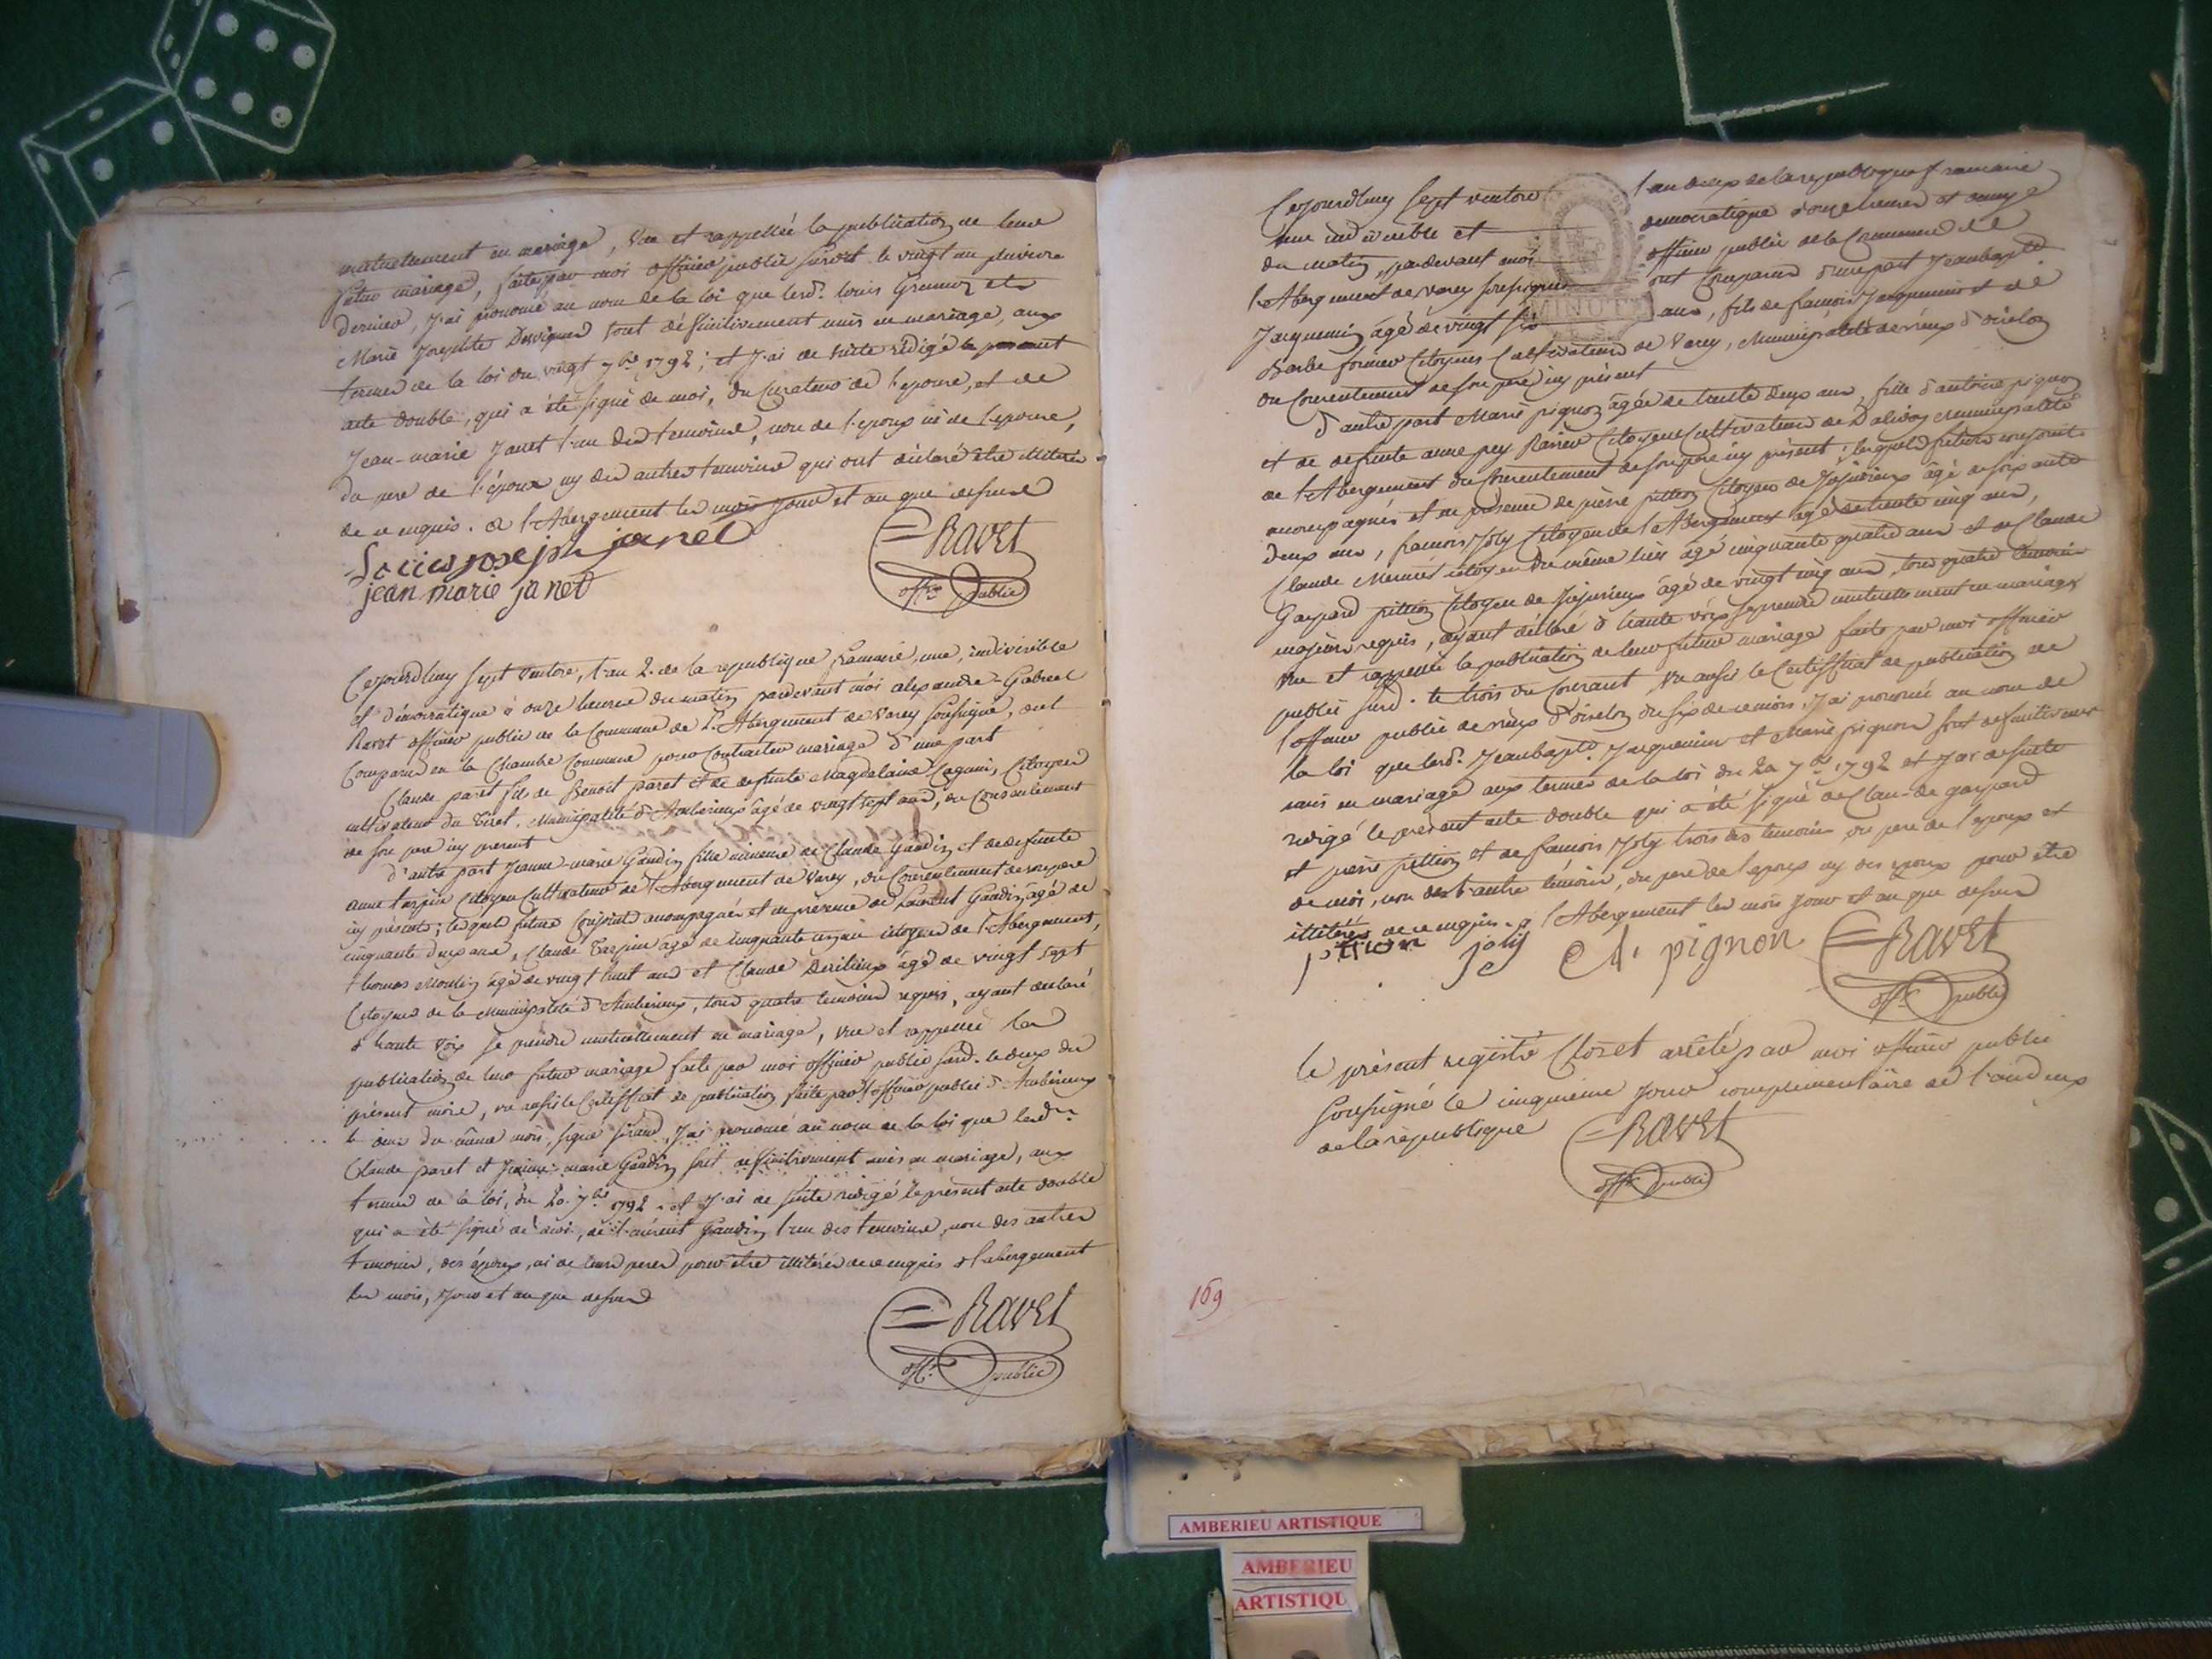 mutuellement en mariage, Vue et rappellée la publication de leur
futur mariage, faite par moi officier public susdit le vingt un pluviose
dernier, J'ai prononcé au nom de la loi que lesd. louis et
Marie Josephte sont définitivement unis en mariage, aux
termes de la loi du vingt 7bre 1792; et J'ai de suite rédigé le présent
acte double, qui a été signé de moi, du Curateur de l'epouse, et de
Jean-marie Janet l'un des temoins, non de l'epoux ni de l'epouse,
du pere de l'époux ny des autres temoins qui ont déclaré être illiteres
de ce enquis. à l'Abergement les mois jour et an que dessus
joseph janet
jean marie janet
Ravet
offr. public
Cejourdhuy sept ventose, l'an 2. de la republique francaise, une, indivisible
et démocratique à onze heures du matin pardevant moi alexandre-Gabriel
Ravet officier public de la Commune de L'Abergement de Varey soussigné, ont
Comparus en la Chambre Commune pour Contracter mariage d'une part
Claude paret fils de Benoit paret et de defunte Magdelaine Citoyen
cultivateur du Tiret, Municipalité d'Amberieux âgé de vingt sept ans, du Consentement
de son pere icy present
d'autre part Jeanne-marie Gaudin fille mineure de Claude Gaudin et de defunte
anne Citoyen Cultivateur de l'Abergement de Varey, du Consentement de son pere
icy présent; lesquels futurs Conjoints accompagnés et en présence de Laurent Gaudin âgé de
cinquante deux ans, Claude âgé de cinquante citoyens de l'Abergement,
thomas Moulin âgé de vingt huit ans et Claude âgé de vingt sept
Citoyens de la Municipalité d'Amberieux, tous quatre temoins requis, ayant declaré
à haute voix se prendre mutuellement en mariage, vue et rappellée la
publication de leur futur mariage faite par moi officier public susd. le deux du
présent mois, vu aussi le Certifficat de publication faite par l'officier public d'Amberieux
le deux du même mois, signé J'ai prononcé au nom de la loi que lesd.
Claude paret et Jeanne-marie Gaudin sont definitivement unis en mariage, aux
termes de la loi, du 20. 7bre 1792. et J'ai de suite redigé le présent acte double
qui a été signé de moi, de Laurent Gaudin l'un des temoins, non des autres
temoins, des époux, ni de leurs peres pour etre illiterés de ce enquis à l'abergement
les mois, jour et an que dessus
Ravet
offr. public
Cejourdhuy sept ventose l'an deux de la republique francaise
une indivisible et democratique à onze heures
du matin, pardevant moi officier public de la Commune de
l'Abergement de Varey soussigné ont Comparus d'une part Jean baptiste
MINUTE
Jacquemin âgé de vingt six ans, fils de francois Jacquemin et de
Barbe Citoyens Cultivateurs de Varey, Municipalité de vieux d'oiselon
du Consentement de son pere icy présent
d'autre part Marie pignon âgée de trente deux ans, fille d'antoine pignon
et de defunte anne Citoyen Cultivateur de Dalivoy Municipalité
de l'Abergement du Consentement de son pere icy présent; lesquels futurs conjoints
accompagnés et en présence de pierre pittion Citoyen de Jujurieux âgé de soixante
deux ans, francois Joly Citoyen de l'Abergement âgé de trente cinq ans,
Claude citoyen du même lieu âgé cinquante quatre ans et de Claude
Gaspard pittion Citoyen de Jujurieux âgé de vingt cinq ans, tous quatre temoins
majeurs requis, ayant déclaré à haute voix se prendre mutuellement en mariage
Vue et rappellée la publication de leur futur mariage faite par moi officier
public susd. le trois du Courant, vu aussi le Certifficat de publication de
l'officier public de vieux d'oiselon du six de ce mois, J'ai prononcé au nom de
la loi que lesd. Jean bapte. Jacquemin et Marie pignon sont definitivement
unis en mariage aux termes de la loi du 20 7bre 1792 et J'ai de suite
redigé le présent acte double qui a été signé de Claude gaspard
et pierre pittion et de francois Joly trois des temoins du pere de l'epouse et
de moi, non de l'autre temoin, du pere de l'epoux ny des epoux pour être
illiterés de ce enquis. à l'Abergement les mois jour et an que dessus
pittion joly A. pignon Ravet
offr. public
le présent registre Clos et arrêté par moi officier public
soussigné le cinquieme jour complementaire de l'an deux
de la republique
Ravet
offr. public
169
AMBERIEU ARTISTIQUE
AMBERIEU
ARTISTIQU